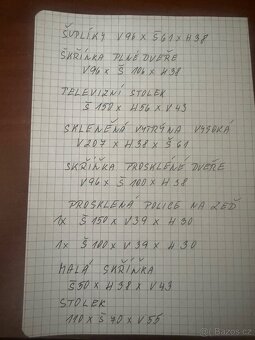 ŠUPLÍKY V96 x Š61 x H38
SKŘÍNKA PLNÉ DVEŘE
V96 x Š 106 x H38
TELEVIZNÍ STOLEK
Š 150 x H56 x V43
SKLENĚNÁ VYTRÝNA VYSOKÁ
V207 x H38 x Š61
SKŘÍŇKA PROSKLENÉ DVEŘE
V96 x Š100 x H38
PROSKLENÁ POLICE NA ZEĎ
1x Š150 x V39 x H30
1x Š100 x V39 x H30
MALÁ SKŘÍŇKA
Š50 x H38 x V43
STOLEK
110 x Š70 x V55
Sbazoš.cz